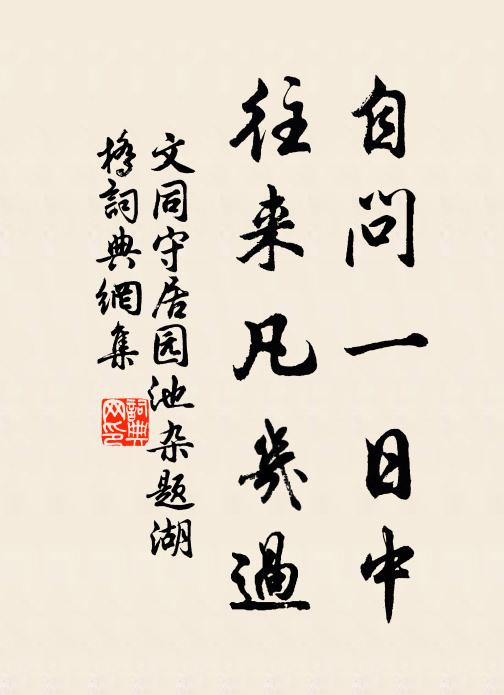 自问一日中
往来凡几過
文同守居园池杂题湖
橋詞典網集
詞典
网印